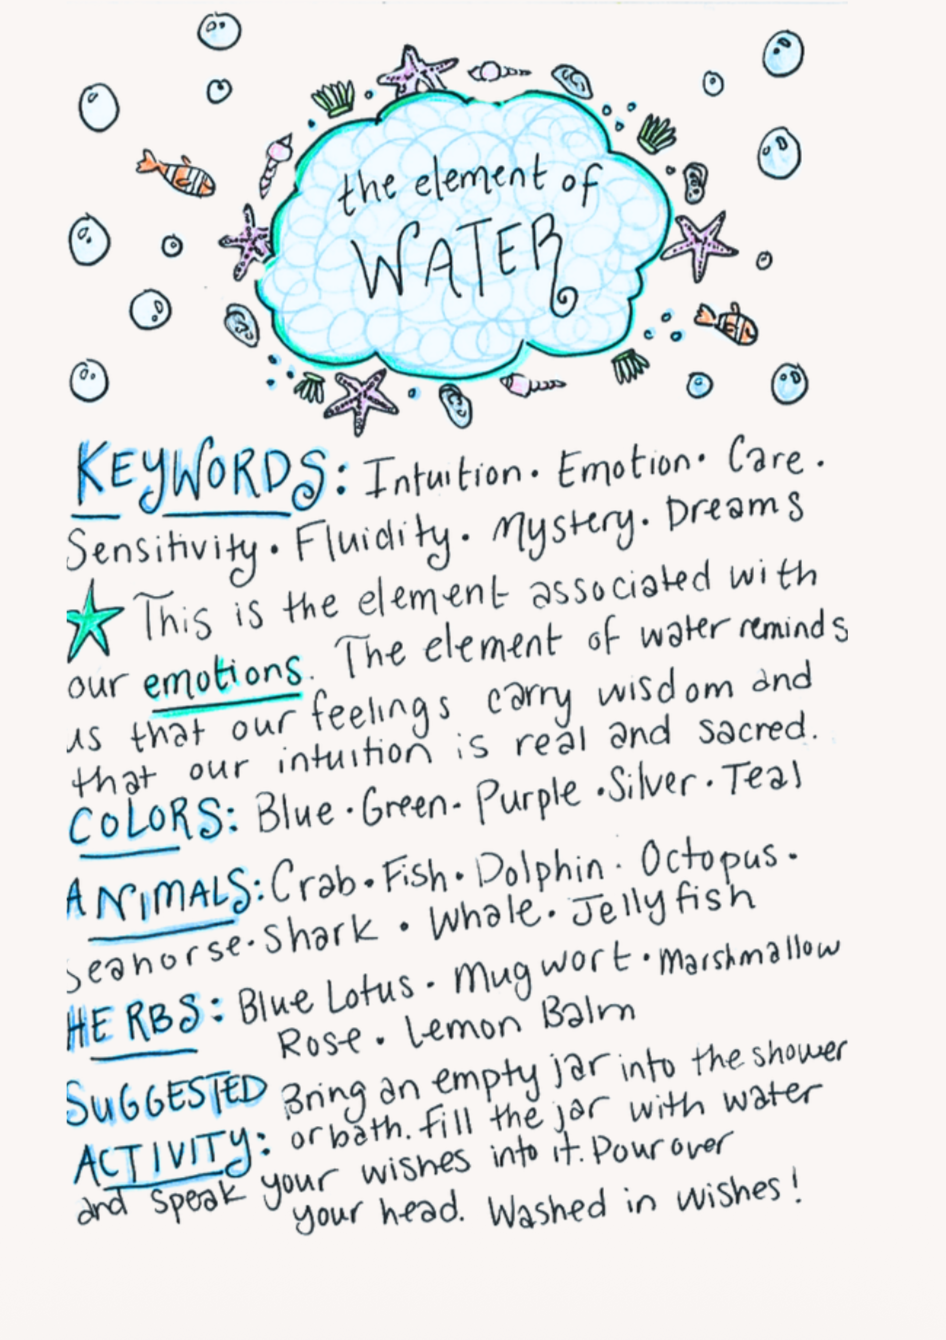 the element of
WATER
KEYWORDS: Intuition · Emotion · Care ·
Sensitivity · Fluidity · Mystery · Dreams
This is the element associated with
our emotions. The element of water reminds
us that our feelings carry wisdom and
that our intuition is real and sacred.
COLORS: Blue · Green · Purple · Silver · Teal
ANIMALS: Crab · Fish · Dolphin · Octopus ·
Seahorse · Shark · Whale · Jellyfish
HERBS: Blue Lotus · Mugwort · Marshmallow
Rose · Lemon Balm
SUGGESTED Bring an empty jar into the shower
ACTIVITY: or bath. Fill the jar with water
and speak your wishes into it. Pour over
your head. Washed in wishes!